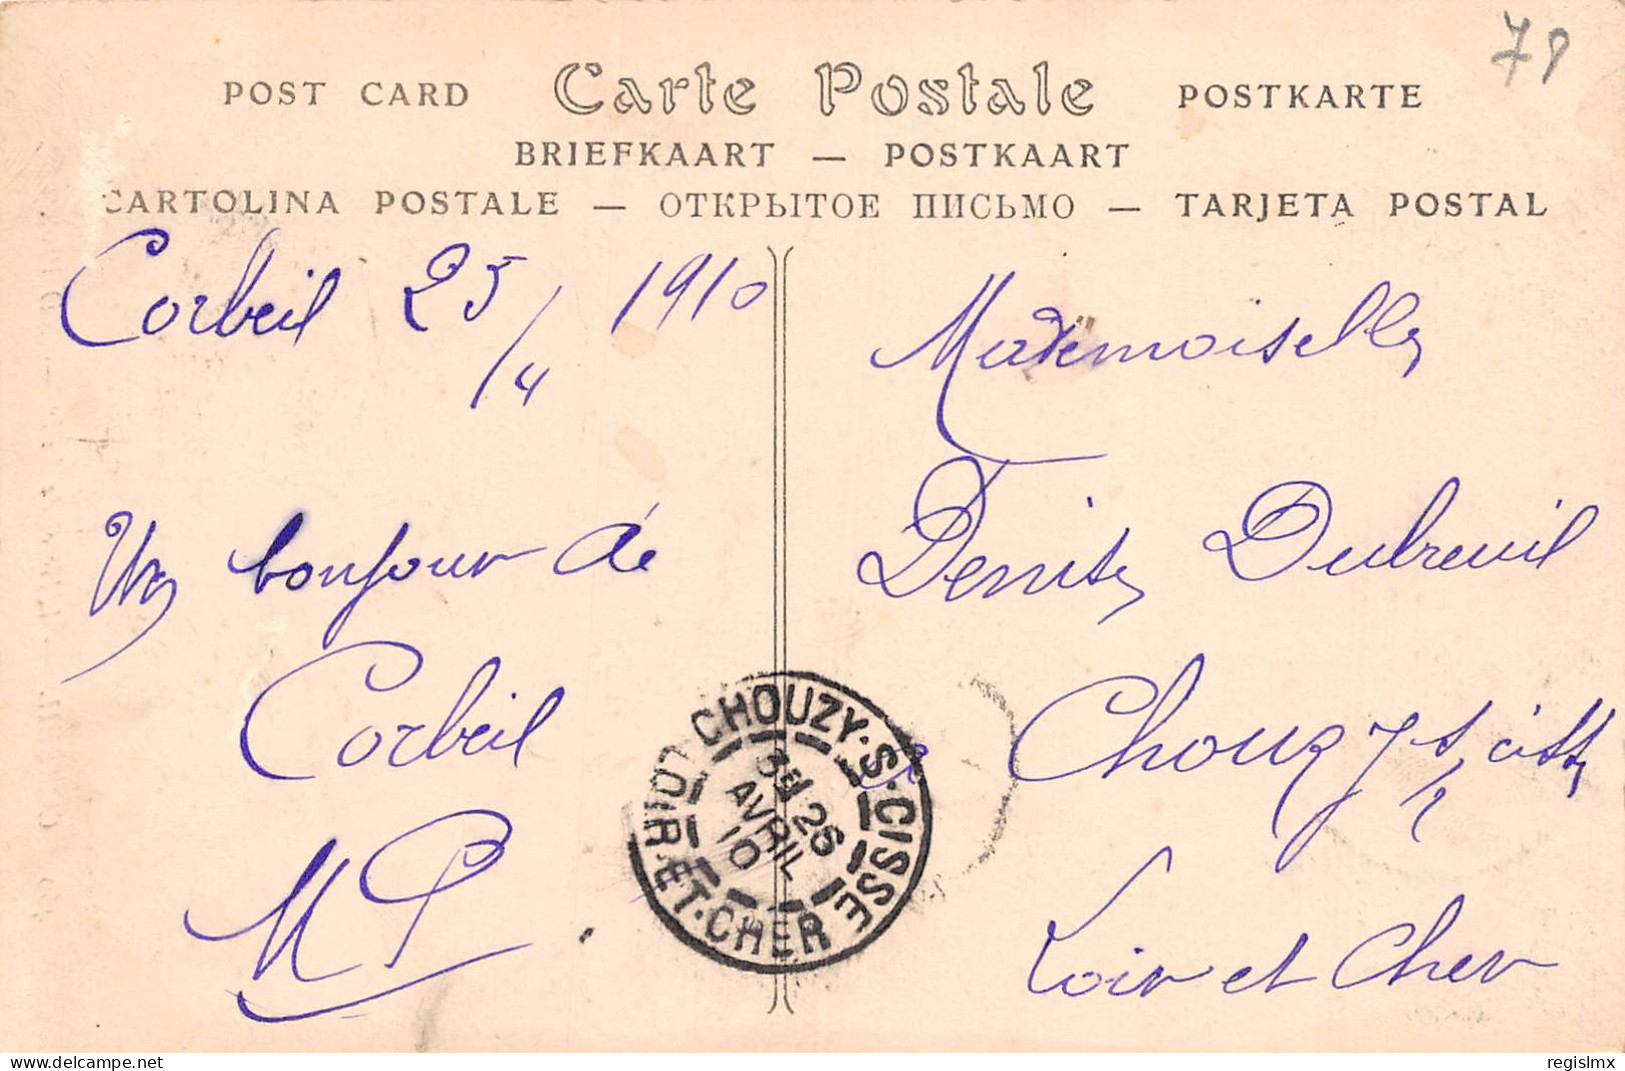 79
POST CARD Carte Postale POSTKARTE
BRIEFKAART — POSTKAART
CARTOLINA POSTALE — ОТКРЫТОЕ ПИСЬМО — TARJETA POSTAL
Corbeil 25/4 1910
Un bonjour de
Corbeil
MP.
Mademoiselle
Denise Dubreuil
Chouzy s/ Cisse
Loir et Cher
CHOUZY·S·CISSE
LOIR·ET·CHER
26
AVRIL
10
delcampe.net
regislmx